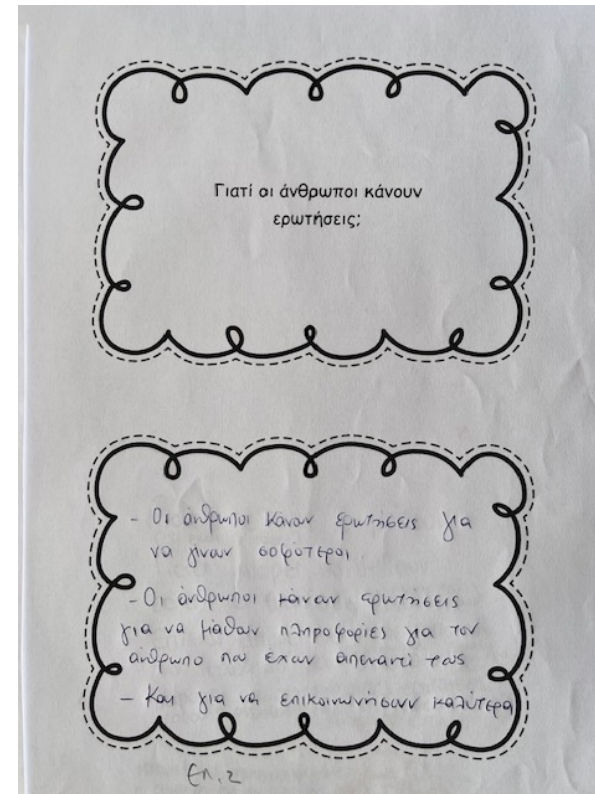 Γιατί οι άνθρωποι κάνουν
ερωτήσεις;
- Οι άνθρωποι κάνουν ερωτήσεις για
να γίνουν σοφότεροι.
- Οι άνθρωποι κάνουν ερωτήσεις
για να μάθουν πληροφορίες για τον
άνθρωπο που έχουν απέναντί τους
- Και για να επικοινωνήσουν καλύτερα
Επ. 2